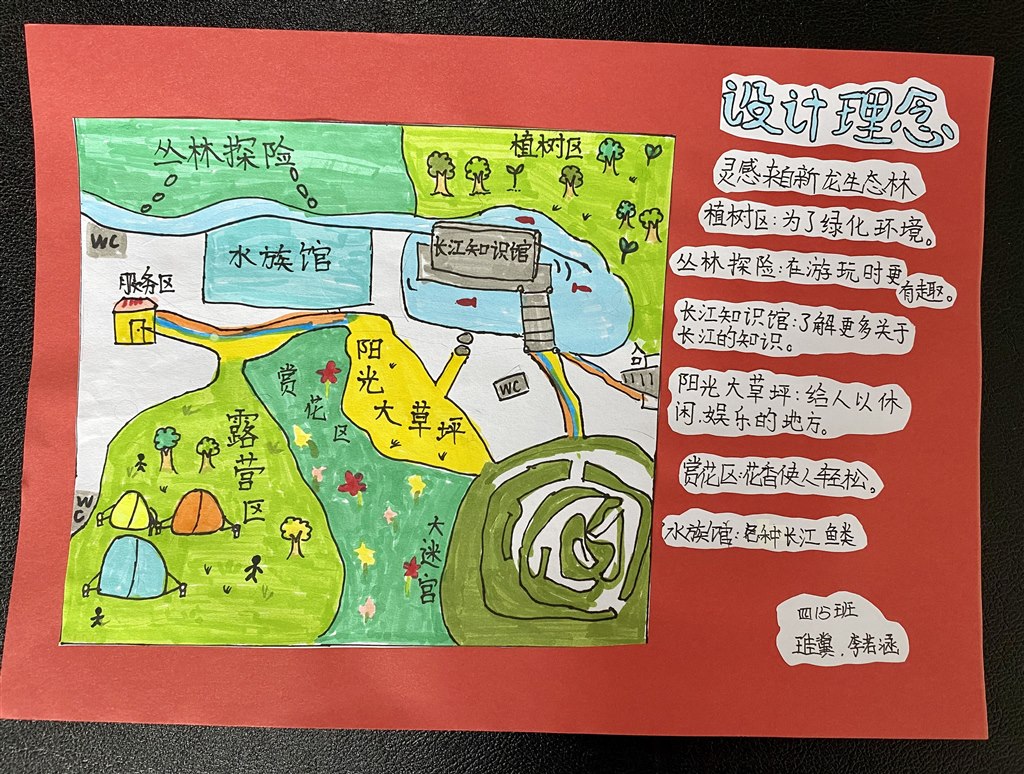 设计理念
灵感来自新龙生态林
植树区:为了绿化环境。
丛林探险:在游玩时更
有趣。
长江知识馆:了解更多关于
长江的知识。
阳光大草坪:给人以休
闲、娱乐的地方。
赏花区:花香使人轻松。
水族馆:各种长江鱼类
四15班
李若涵
丛林探险
植树区
WC
水族馆
长江知识馆
服务区
阳光大草坪
赏花区
WC
露营区
WC
大迷宫